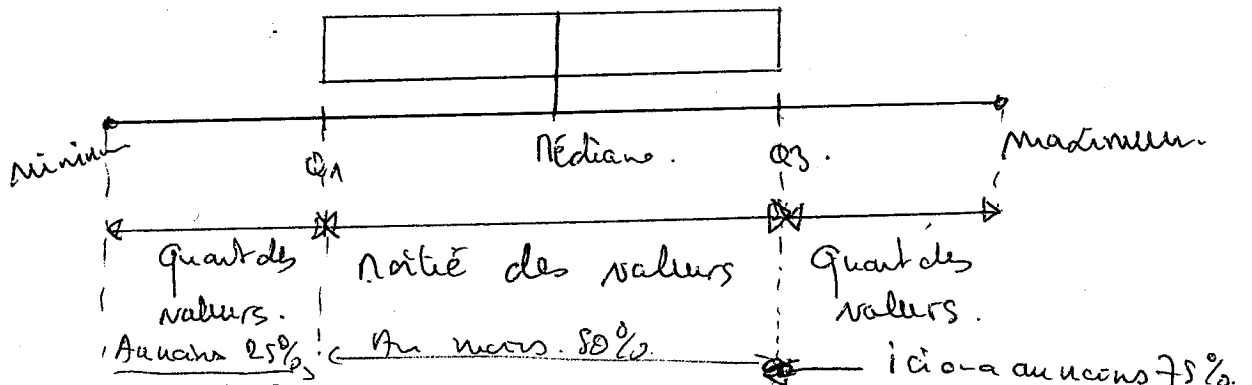 minimum Q1 Médiane. Q3. maximum.
Quart des moitié des valeurs Quart des
valeurs. valeurs.
Au moins 25% Au moins 50% ici on a au moins 75%.